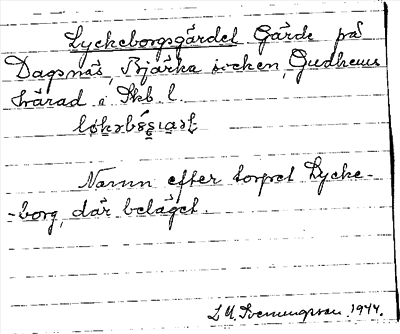 Lyckeborgsgärdet Gärde på
Dagsnäs, Bjärka socken, Gudhems
härad i Skb. l.

Namn efter torpet Lycke-
-borg, där beläget.
S. M. Svenungsson 1944.